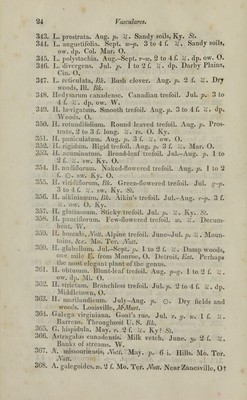 24 Vasculares.
343. L. prostrata. Aug. p. ♃. Sandy soils, Ky. St.
344. L. angustifolia. Sept. w-p. 3 to 4 f. ♃. Sandy soils, ow. dp. Col. Mar. O.
345. L. polystachia. Aug.-Sept. r-w. 2 to 4 f. ♃. dp. ow. O.
346. L. divergens. Jul. p. 1 to 2 f. ♃. dp. Darby Plains, Cin. O.
347. L. reticulata, Bk. Bush clover. Aug. p. 2 f. ♃. Dry woods, Ill. Bk.
348. Hedysarum canadense. Canadian trefoil. Jul. p. 3 to 4 f. ♃. dp. ow. W.
349. H. lævigatum. Smooth trefoil. Aug. p. 3 to 4 f. ♃. dp. Woods. O.
350. H. rotundifolium. Round leaved trefoil. Aug. p. Prostrate, 2 to 3 f. long. ♃. rs. O. Ky.
351. H. paniculatum. Aug. p. 3 f. ♃. ow. O.
352. H. rigidum. Rigid trefoil. Aug. p. 3 f. ♃. Mar. O.
353. H. acuminatum. Broad-leaf trefoil. Jul.-Aug. p. 1 to 2 f. ♃. sw. Ky. O.
354. H. nudiflorum. Naked-flowered trefoil. Aug. p. 1 to 2 f. ☉. sw. Ky. O.
355. H. viridiflorum, Bk. Green-flowered trefoil. Jul. g-p. 3 to 4 f. ♃. sw. Ky. St.
356. H. aikinianum, Bk. Aikin's trefoil. Jul.-Aug. r-p. 3 f. ♃. ow. O. Ky.
357. H. glutinosum. Sticky trefoil. Jul. p. ♃. Ky. St.
358. H. pauciflorum. Few-flowered trefoil. w. ♃. Decumbent, W.
359. H. boreale, Nutt. Alpine trefoil. June-Jul. p. ♃. Mountains, &c. Mo. Ter. Nutt.
360. H. glabellum. Jul.-Sept. p. 1 to 2 f. ♃. Damp woods, one mile E. from Monroe, O. Detroit, Eat. Perhaps the most elegant plant of the genus.
361. H. obtusum. Blunt-leaf trefoil. Aug. p-g. 1 to 2 f. ♃. ow. dp. Mi. O.
362. H. strictum. Branchless trefoil. Jul. p. 2 to 4 f. ♃. dp. Middletown, O.
363. H. marilandicum. July-Aug. p. ☉. Dry fields and woods. Louisville, M'Murt.
364. Galega virginiana. Goat's rue. Jul. r. p. w. 1 f. ♃. Barrens. Throughout U. S. Bk.
365. G. hispidula. May. r. 2 f. ♃. Ky? St.
366. Astragalus canadensis. Milk vetch. June. y. 2 f. ♃. Banks of streams. W.
367. A. missouriensis, Nutt. May. p. 6 i. Hills. Mo. Ter. Nutt.
368. A. galegoides. w. 2 f. Mo. Ter. Nutt. Near Zanesville, O?